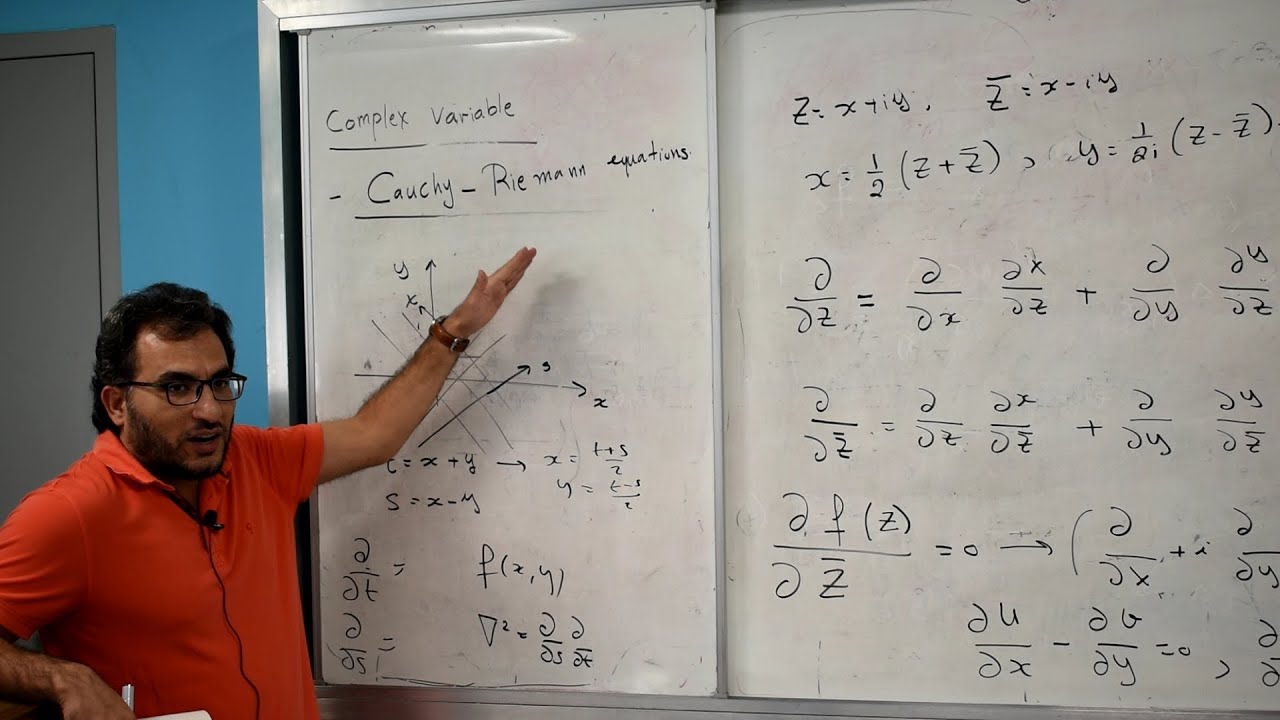 Complex Variable
- Cauchy - Riemann equations.
y
x
s
x
t = x + y → x = t+s/2
s = x - y y = t-s/2
∂/∂t =
f(x, y)
∂/∂s =
∇² = ∂/∂s ∂/∂t
z = x + iy, z̄ = x - iy
x = 1/2 (z + z̄), y = 1/2i (z - z̄)
∂/∂z = ∂/∂x ∂x/∂z + ∂/∂y ∂y/∂z
∂/∂z̄ = ∂/∂z ∂x/∂z̄ + ∂/∂y ∂y/∂z̄
∂f(z)/∂z̄ = 0 → (∂/∂x + i ∂/∂y
∂u/∂x - ∂v/∂y = 0,